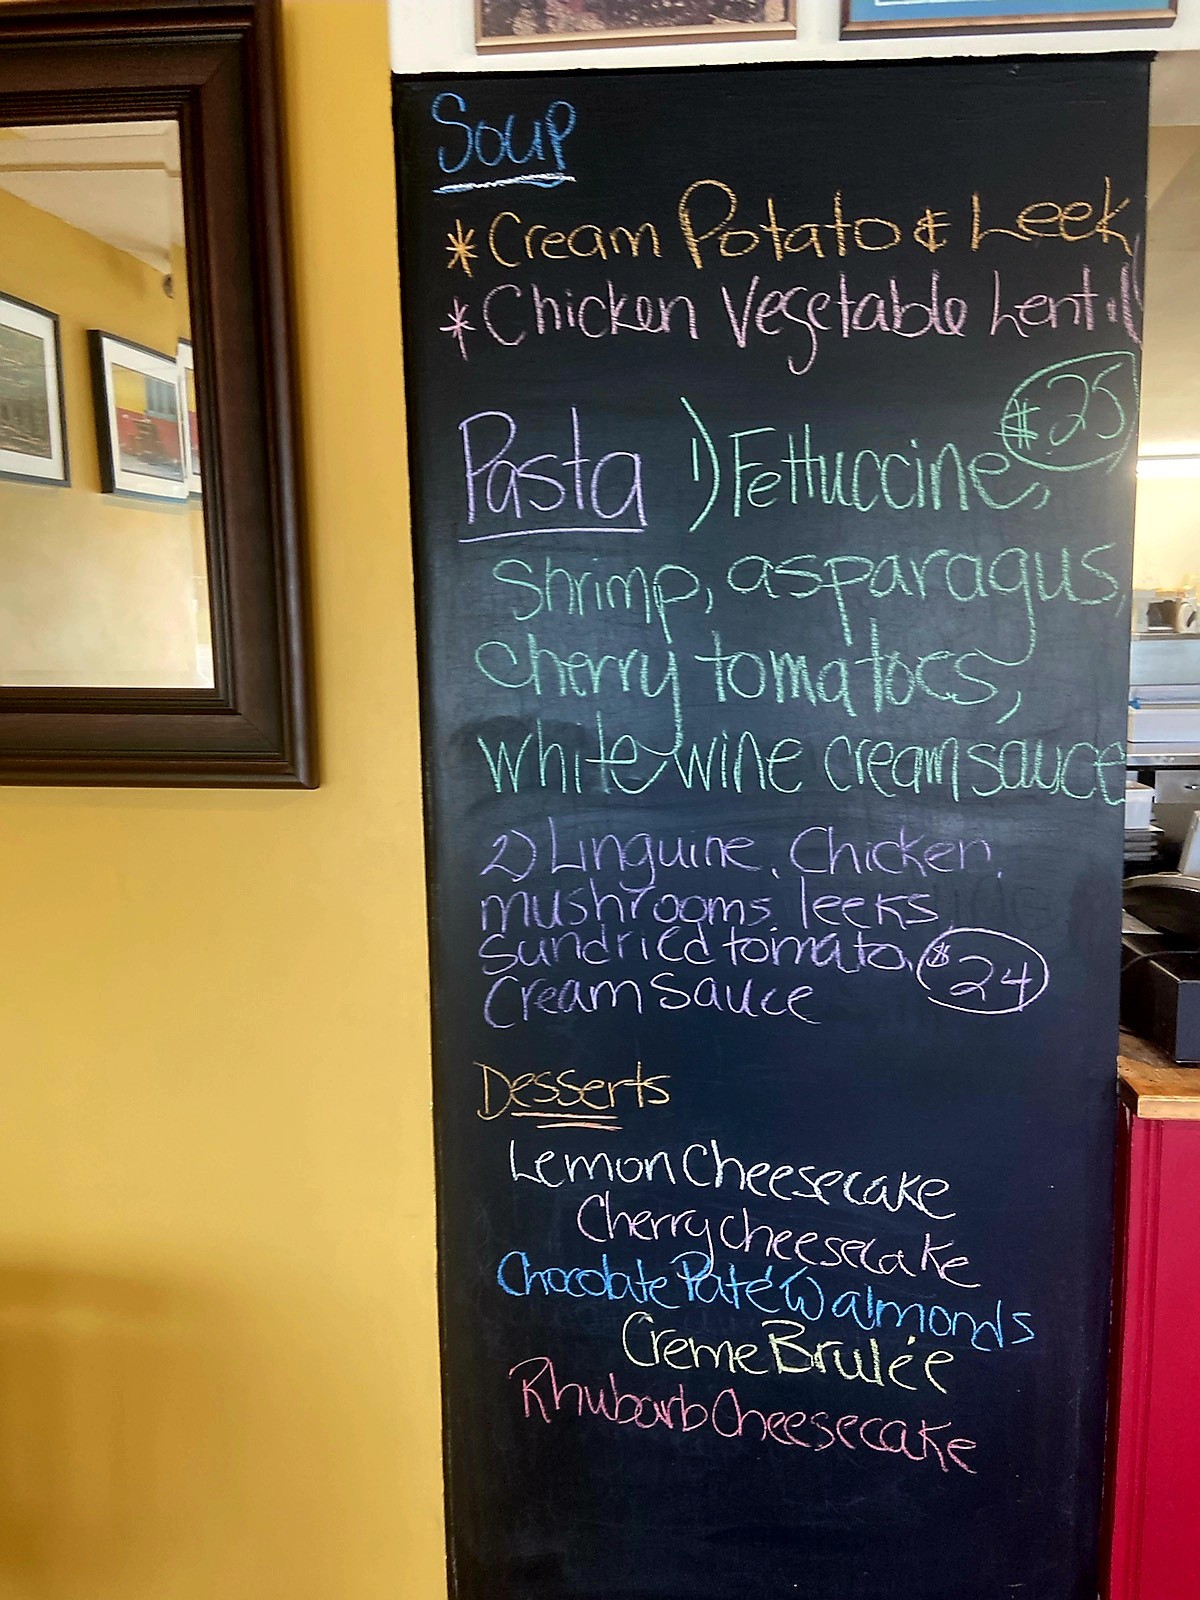 Soup
* Cream Potato & Leek
* Chicken Vegetable Lentil
$25
Pasta 1) Fettuccine,
Shrimp, asparagus,
cherry tomatoes,
white wine cream sauce
2) Linguine, Chicken,
mushrooms, leeks,
sundried tomato, $24
Cream Sauce
Desserts
Lemon Cheesecake
Cherry cheesecake
Chocolate Paté W almonds
Creme Brulée
Rhubarb Cheesecake